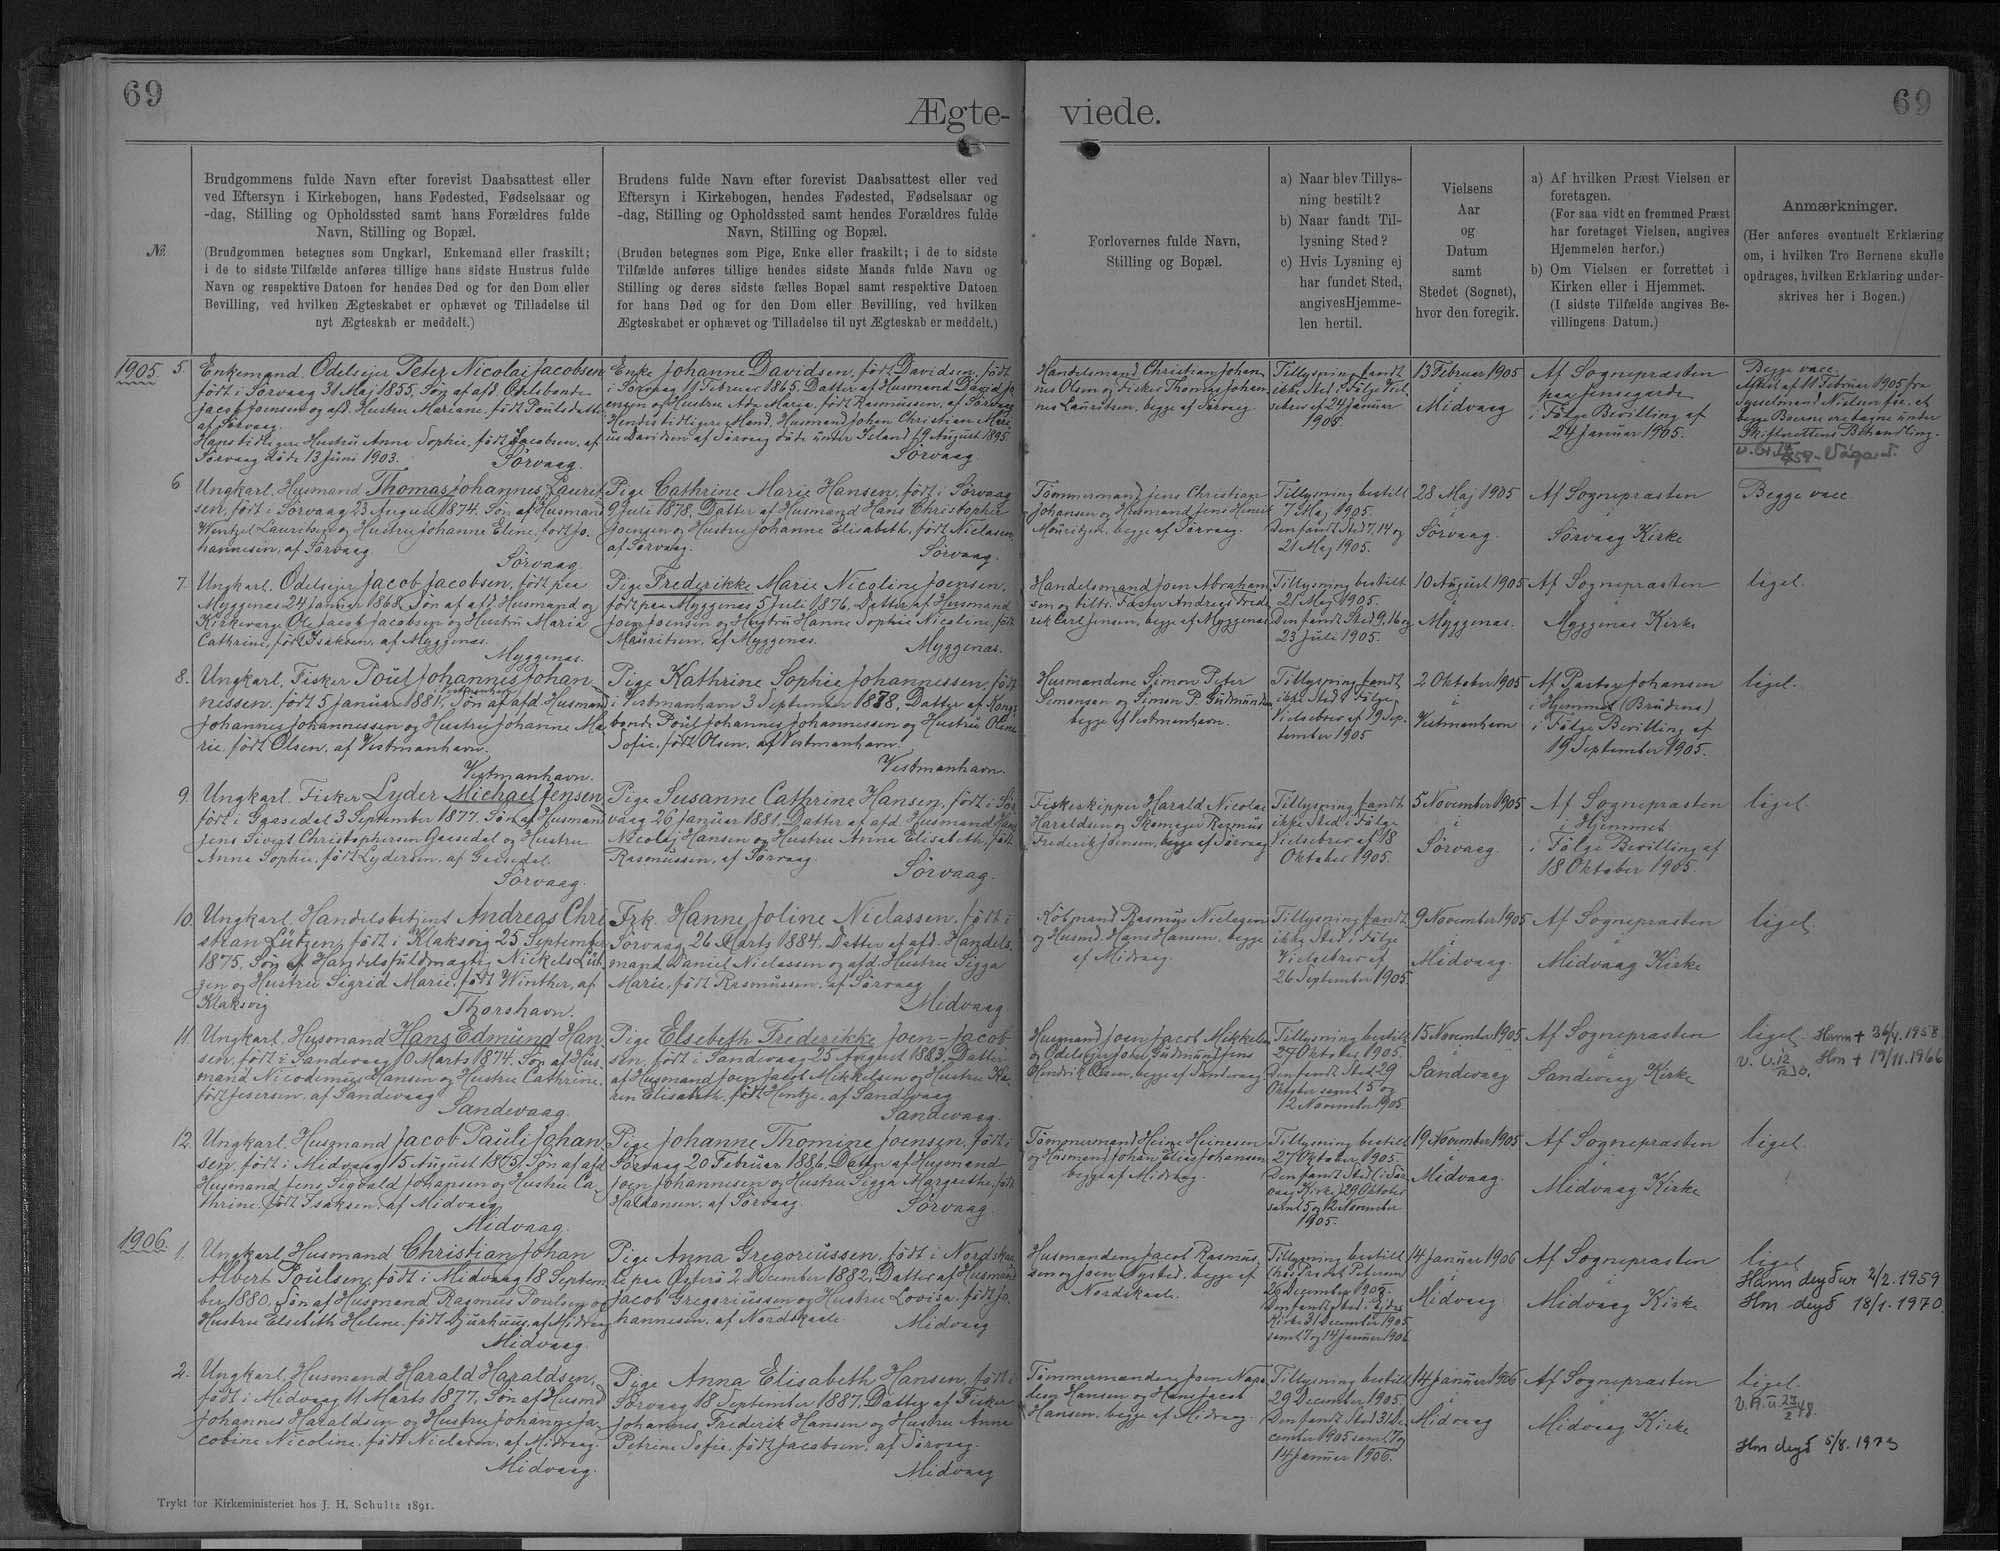 69
Ægte-
viede.
69
№
Brudgommens fulde Navn efter forevist Daabsattest eller
ved Eftersyn i Kirkebogen, hans Fødested, Fødselsaar og
-dag, Stilling og Opholdssted samt hans Forældres fulde
Navn, Stilling og Bopæl.
(Brudgommen betegnes som Ungkarl, Enkemand eller fraskilt;
i de to sidste Tilfælde anføres tillige hans sidste Hustrus fulde
Navn og respektive Datoen for hendes Død og for den Dom eller
Bevilling, ved hvilken Ægteskabet er ophævet og Tilladelse til
nyt Ægteskab er meddelt.)
Brudens fulde Navn efter forevist Daabsattest eller ved
Eftersyn i Kirkebogen, hendes Fødested, Fødselsaar og
-dag, Stilling og Opholdssted samt hendes Forældres fulde
Navn, Stilling og Bopæl.
(Bruden betegnes som Pige, Enke eller fraskilt; i de to sidste
Tilfælde anføres tillige hendes sidste Mands fulde Navn og
Stilling og deres sidste fælles Bopæl samt respektive Datoen
for hans Død og for den Dom eller Bevilling, ved hvilken
Ægteskabet er ophævet og Tilladelse til nyt Ægteskab er meddelt.)
Forlovernes fulde Navn,
Stilling og Bopæl.
a) Naar blev Tillys-
ning bestilt?
b) Naar fandt Til-
lysning Sted?
c) Hvis Lysning ej
har fundet Sted,
angives Hjemme-
len hertil.
Vielsens
Aar
og
Datum
samt
Stedet (Sognet),
hvor den foregik.
a) Af hvilken Præst Vielsen er
foretagen.
(For saa vidt en fremmed Præst
har foretaget Vielsen, angives
Hjemmelen herfor.)
b) Om Vielsen er forrettet i
Kirken eller i Hjemmet.
(I sidste Tilfælde angives Be-
villingens Datum.)
Anmærkninger.
(Her anføres eventuelt Erklæring
om, i hvilken Tro Børnene skulle
opdrages, hvilken Erklæring under-
skrives her i Bogen.)
1905 5. Enkemand. Odelsejer Peter Nicolai Jacobsen
født i Sørvaag 31 Maj 1855. Søn af afd. Odelsbonde
Jacob Joensen og afd. Hustru Mariane, født Poulsdatter
af Sørvaag.
Hans tidligere Hustru Anna Sophie, født Jacobsen, af
Sørvaag døde 13 Juni 1903.
Sørvaag.
Enke Johanne Davidsen, født Davidsen, født
i Sørvaag 11 Februar 1865. Datter af Husmand David Jo
ensen og Hustru Ada Maria, født Rasmussen, af Sørvaag
Hendes tidligere Mand, Husmand Johan Christian Mari
us Davidsen af Sørvaag døde under Island 19 August 1895.
Sørvaag.
Handelsmand Christian Johan
nes Olsen og Fisker Thomas Johan
nes Lauritsen, begge af Sørvaag.
Tillysning fandt
ikke Sted i Følge Viel
sebrev af 24 Januar
1905.
13 Februar 1905
i
Midvaag
Af Sognepræsten
paa Jensegarde
i Følge Bevilling af
24 Januar 1905.
Begge vacc.
Attest af 11 Februar 1905 fra
Sysselmand Nielsen for, at
begge Boerne ere tagne under
Skifterettens Behandling.
6 Ungkarl. Husmand Thomas Johannes Laurit
sen, født i Sørvaag 23 August 1874. Søn af Husmand
Wentzel Lauritsen og Hustru Johanne Elene, født Jo-
hannesen, af Sørvaag.
Sørvaag.
Pige Cathrine Marie Hansen, født i Sørvaag
9 Juli 1878. Datter af Husmand Hans Christopher
Joensen og Hustru Johanne Elisabeth, født Niclasen
af Sørvaag.
Sørvaag.
Tømmermand Jens Christian
Johansen og Husmand Jens Henrik
Mouritzen, begge af Sørvaag.
Tillysning bestilt
7 Maj 1905.
Den fandt Sted 7, 14 og
21 Maj 1905.
28 Maj 1905
i
Sørvaag.
Af Sognepræsten
i
Sørvaag Kirke
Begge vacc.
7. Ungkarl. Odelsejer Jacob Jacobsen, født paa
Myggenæs 24 Januar 1868. Søn af afd. Husmand og
Kirkeværge Ole Jacob Jacobsen og Hustru Maria
Cathrine, født Isaksen, af Myggenæs.
Myggenæs.
Pige Frederikke Marie Nicoline Joensen,
født paa Myggenæs 5 Juli 1876. Datter af Husmand
Joen Joensen og Hustru Hanne Sophie Nicoline, født
Mauritsen, af Myggenæs.
Myggenæs.
Handelsmand Joen Abraham
sen og tilts. Fæster Andreas Frede
rik Carl Jensen, begge af Myggenæs.
Tillysning bestilt
21 Maj 1905.
Den fandt Sted 9, 16 og
23 Juli 1905.
10 August 1905
i
Myggenæs.
Af Sognepræsten
i
Myggenæs Kirke
ligel.
8. Ungkarl, Fisker Poul Johannes Johan
nessen, født 5 Januar 1881, Søn af afd. Husmand
Vestmanhavn
Johannes Johannessen og Hustru Johanne Ma
rie, født Olsen, af Vestmanhavn.
Vestmanhavn.
Pige Kathrine Sophie Johannessen, født
i Vestmanhavn 3 September 1878, Datter af Konge
bonde Poul Johannes Johannessen og Hustru Olena
Sofie, født Olsen, af Vestmanhavn.
Vestmanhavn.
Husmændene Simon Peter
Simonsen og Simon P. Gudmundsen
begge af Vestmanhavn.
Tillysning fandt
ikke Sted i Følge
Vielsebrev af 19 Sep-
tember 1905
2 Oktober 1905
i
Vestmanhavn
Af Pastor Johansen
i Hjemmet (Brudens)
i Følge Bevilling af
19 September 1905.
ligel.
9. Ungkarl. Fisker Lyder Michael Jensen
født i Gaasedal 3 September 1877. Søn af Husmand
Jens Sivert Christophersen Gaasedal og Hustru
Anna Sophie, født Lydersen, af Gaasedal.
Sørvaag.
Pige Susanne Cathrine Hansen, født i Sør
vaag 26 Januar 1881. Datter af afd. Husmand Hans
Nicolaj Hansen og Hustru Anna Elisabeth, født
Rasmussen, af Sørvaag.
Sørvaag.
Fiskeskipper Harald Nicolai
Haraldsen og Skomager Rasmus
Frederik Joensen, begge af Sørvaag
Tillysning fandt
ikke Sted i Følge
Vielsebrev af 18
Oktober 1905.
5 November 1905
i
Sørvaag.
Af Sognepræsten
i Hjemmet
i Følge Bevilling af
18 Oktober 1905.
ligel.
10. Ungkarl, Handelsbetjent Andreas Chri
stian Lützen, født i Klaksvig 25 September
1875, Søn af Handelsfuldmægtig Nickels Lüt
zen og Hustru Sigrid Marie, født Winther, af
Klaksvig
Thorshavn.
Frk. Hanne Joline Niclassen, født i
Sørvaag 26 Marts 1884. Datter af afd. Handels-
mand Daniel Niclassen og afd. Hustru Sigga
Marie, født Rasmussen, af Sørvaag
Midvaag.
Købmand Rasmus Nielsen
og Husmd. Hans Hansen, begge
af Midvaag.
Tillysning fandt
ikke Sted i Følge
Vielsebrev af
26 September 1905.
9 November 1905
i
Midvaag.
Af Sognepræsten
i
Midvaag Kirke
ligel.
11. Ungkarl, Husmand Hans Edmund Han
sen, født i Sandevaag 10 Marts 1874. Søn af Hus-
mand Nicodemus Hansen og Hustru Cathrine,
født Jesersen, af Sandevaag
Sandevaag.
Pige Elsebeth Frederikke Joen-Jacob
sen, født i Sandevaag 25 August 1883. Datter
af Husmand Joen Jacob Mikkelsen og Hustru Ka-
ren Elisabeth, født Hentze, af Sandevaag
Sandevaag.
Husmand Joen Jacob Mikkelsen
og Odelsejer Joh. Gudmund Jens
Hendrik Olsen, begge af Sandevaag.
Tillysning bestilt
27 Oktober 1905.
Den fandt Sted 29
Oktober samt 5 og
12 November 1905.
15 November 1905.
i
Sandevaag
Af Sognepræsten
i
Sandevaag Kirke
ligel. Hann + 30/4. 1958
Hon + 19/11. 1966
12. Ungkarl. Husmand Jacob Pauli Johan-
sen, født i Midvaag 15 August 1875, Søn af afd
Husmand Jens Sigvald Johansen og Hustru Ca-
thrine, født Isaksen, af Midvaag
Midvaag.
Pige Johanne Thomine Joensen, født i
Sørvaag 20 Februar 1886. Datter af Husmand
Joen Johannesen og Hustru Sigga Margrethe, født
Haldansen, af Sørvaag.
Sørvaag.
Tømmermand Heine Heinesen
og Husmand Johan Elias Johansen
begge af Midvaag.
Tillysning bestilt
27 Oktober 1905.
Den fandt Sted (i Sør
vaag Kirke) 29 Oktober
samt 5 og 12 November
1905.
19 November 1905
i
Midvaag.
Af Sognepræsten
i
Midvaag Kirke
ligel.
1906. 1. Ungkarl, Husmand Christian Johan
Albert Poulsen, født i Midvaag 18 Septem
ber 1880. Søn af Husmand Rasmus Poulsen og
Hustru Elsebeth Helene, født Djurhuus, af Midvaag
Midvaag.
Pige Anna Gregoriussen, født i Nordska
le paa Østerø 2 December 1882, Datter af Husmand
Jacob Gregoriussen og Hustru Lovisa, født Jo
hannesen, af Nordskaale.
Midvaag
Husmændene Jacob Rasmus
sen og Joen Nysted, begge af
Nordskaale.
Tillysning bestilt
hos Provst Petersen
26 December 1905.
Den fandt Sted i Eides
Kirke 31 December 1905
samt 7 og 14 Januar 1906
14 Januar 1906
i
Midvaag.
Af Sognepræsten
i
Midvaag Kirke
ligel
Hann deyður 2/2. 1959
Hon deyð 18/1. 1970.
2. Ungkarl, Husmand Harald Haraldsen,
født i Midvaag 11 Marts 1877, Søn af Husmd
Johannes Haraldsen og Hustru Johanne Ja-
cobine Nicoline, født Niclasen, af Midvaag.
Midvaag.
Pige Anna Elisabeth Hansen, født i
Sørvaag 18 September 1887. Datter af Fisker
Johannes Frederik Hansen og Hustru Anna
Petrine Sofie, født Jacobsen, af Sørvaag.
Midvaag
Tømmermændene Joen Napo
leon Hansen og Hans Jacob
Hansen, begge af Midvaag.
Tillysning bestilt
29 December 1905.
Den fandt Sted 31 De
cember 1905 samt 7 og
14 Januar 1906.
14 Januar 1906
i
Midvaag
Af Sognepræsten
i
Midvaag Kirke
ligel.
Hon deyð 5/8. 1973
Trykt for Kirkeministeriet hos J. H. Schultz 1891.